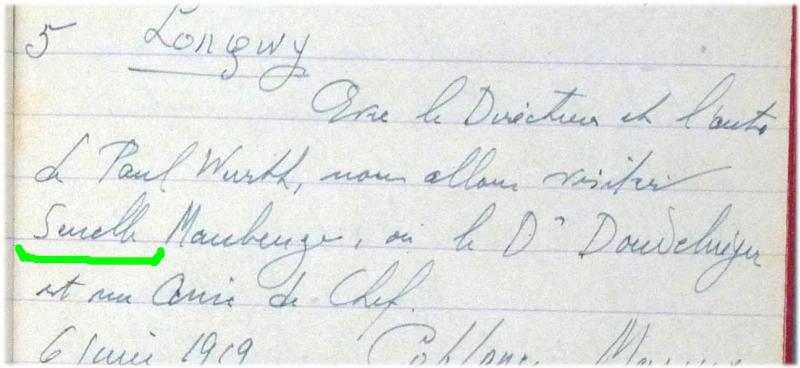 5 Longwy
Avec le Directeur et l'auto
de Paul Wurth, nous allons visiter
Senelle Maubeuge, où le Dr
est un Ami de Chef.
6 Juin 1919